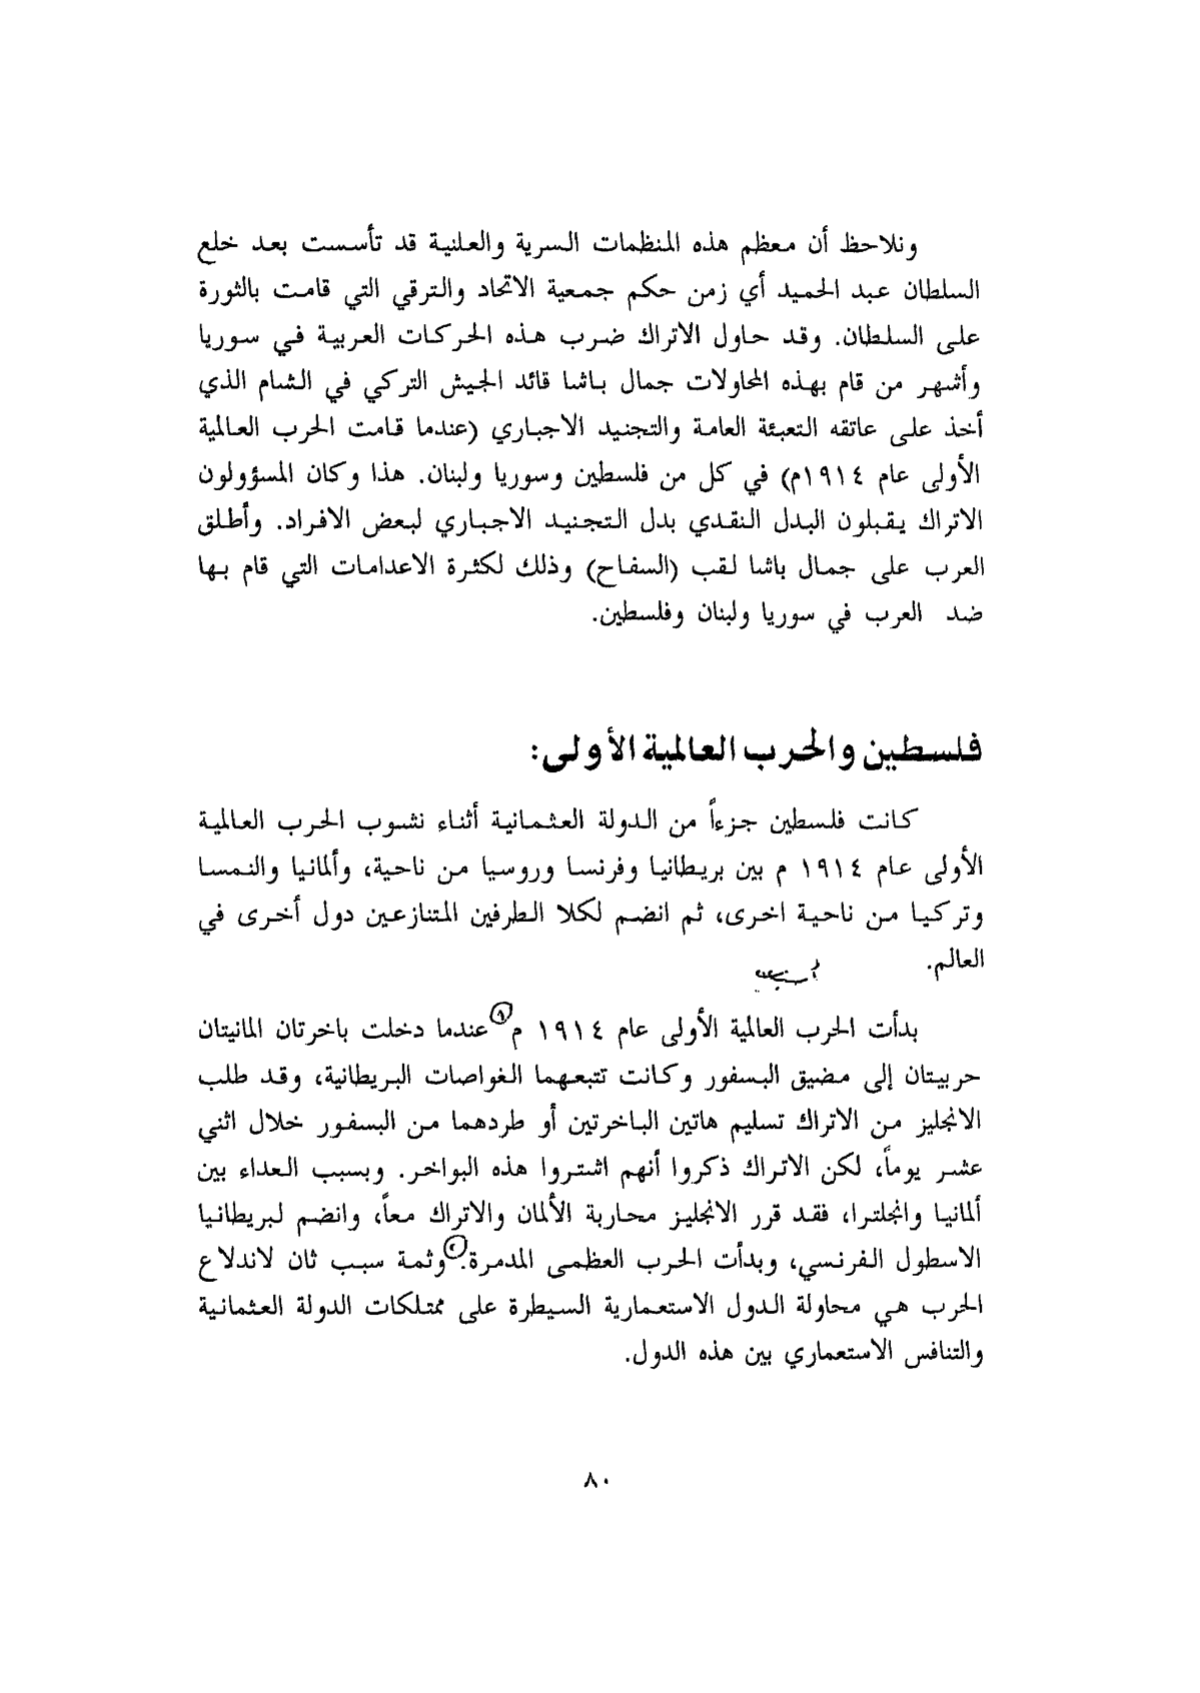 ونلاحظ أن معظم هذه المنظمات السرية والعلنية قد تأسست بعد خلع
السلطان عبد الحميد أي زمن حكم جمعية الاتحاد والترقي التي قامت بالثورة
على السلطان. وقد حاول الاتراك ضرب هذه الحركات العربية في سوريا
وأشهر من قام بهذه المحاولات جمال باشا قائد الجيش التركي في الشام الذي
أخذ على عاتقه التعبئة العامة والتجنيد الاجباري (عندما قامت الحرب العالمية
الأولى عام ١٩١٤م) في كل من فلسطين وسوريا ولبنان. هذا وكان المسؤولون
الاتراك يقبلون البدل النقدي بدل التجنيد الاجباري لبعض الافراد. وأطلق
العرب على جمال باشا لقب (السفاح) وذلك لكثرة الاعدامات التي قام بها
ضد العرب في سوريا ولبنان وفلسطين.
فلسطين والحرب العالمية الأولى:
كانت فلسطين جزءاً من الدولة العثمانية أثناء نشوب الحرب العالمية
الأولى عام ١٩١٤ م بين بريطانيا وفرنسا وروسيا من ناحية، وألمانيا والنمسا
وتركيا من ناحية اخرى، ثم انضم لكلا الطرفين المتنازعين دول أخرى في
العالم.
بدأت الحرب العالمية الأولى عام ١٩١٤ م ١ عندما دخلت باخرتان المانيتان
حربيتان إلى مضيق البسفور وكانت تتبعهما الغواصات البريطانية، وقد طلب
الانجليز من الاتراك تسليم هاتين الباخرتين أو طردهما من البسفور خلال اثني
عشر يوماً، لكن الاتراك ذكروا أنهم اشتروا هذه البواخر. وبسبب العداء بين
ألمانيا وانجلترا، فقد قرر الانجليز محاربة الألمان والاتراك معاً، وانضم لبريطانيا
الاسطول الفرنسي، وبدأت الحرب العظمى المدمرة. ٢ وثمة سبب ثان لاندلاع
الحرب هي محاولة الدول الاستعمارية السيطرة على ممتلكات الدولة العثمانية
والتنافس الاستعماري بين هذه الدول.
٨٠